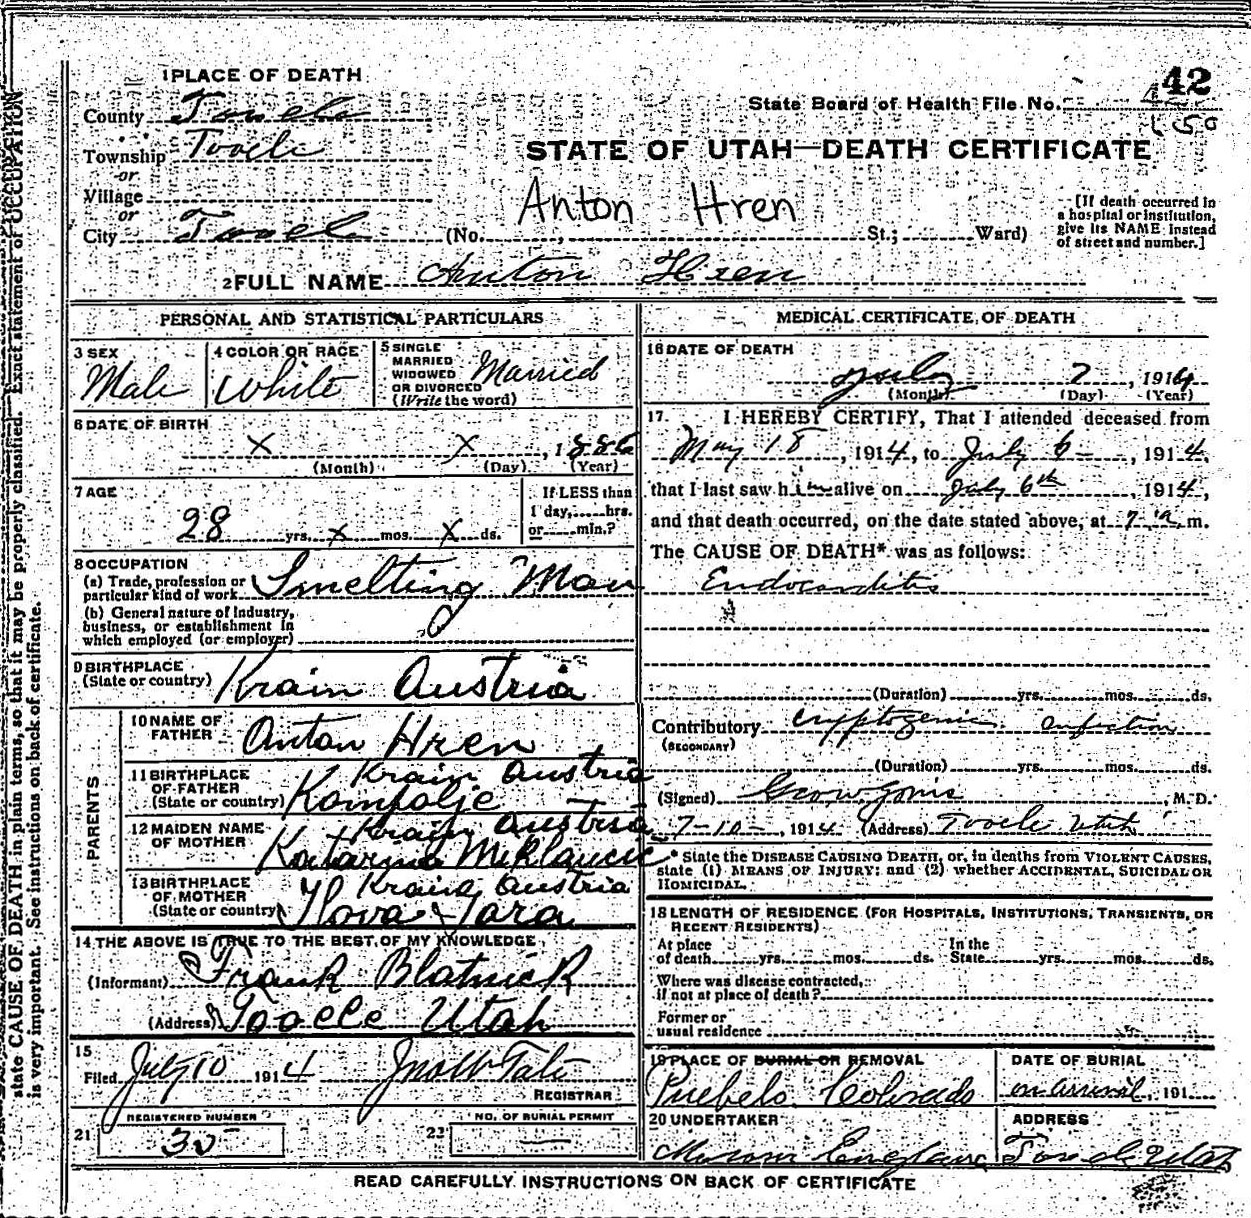 1 PLACE OF DEATH
County Tooele
Township Tooele
or
Village
or
City Tooele (No. , St.; Ward)
42
State Board of Health File No.
STATE OF UTAH—DEATH CERTIFICATE
Anton Hren
[If death occurred in
a hospital or institution,
give its NAME instead
of street and number.]
2 FULL NAME Anton Hren
PERSONAL AND STATISTICAL PARTICULARS
3 SEX
Male
4 COLOR OR RACE
White
5 SINGLE
MARRIED
WIDOWED
OR DIVORCED
(Write the word)
Married
6 DATE OF BIRTH
x x , 1886
(Month) (Day) (Year)
7 AGE
28 yrs. x mos. x ds.
If LESS than
1 day, hrs.
or min.?
8 OCCUPATION
(a) Trade, profession or
particular kind of work Smelting Man
(b) General nature of industry,
business, or establishment in
which employed (or employer)
9 BIRTHPLACE
(State or country) Krain Austria
PARENTS
10 NAME OF
FATHER Anton Hren
11 BIRTHPLACE
OF FATHER
(State or country)
Krain Austria
Kompolje
12 MAIDEN NAME
OF MOTHER
Krain Austria
Katarina Miklaucic
13 BIRTHPLACE
OF MOTHER
(State or country)
Kraina Austria
14 THE ABOVE IS TRUE TO THE BEST OF MY KNOWLEDGE
(Informant) Frank Blatnick
(Address) Tooele Utah
15
Filed July 10 1914
REGISTRAR
REGISTERED NUMBER
21 35
NO. OF BURIAL PERMIT
22 —
MEDICAL CERTIFICATE OF DEATH
16 DATE OF DEATH
July 7 , 1914
(Month) (Day) (Year)
17. I HEREBY CERTIFY, That I attended deceased from
May 18 , 1914, to July 6 , 1914,
that I last saw him alive on July 6th , 1914,
and that death occurred, on the date stated above, at 7 a m.
The CAUSE OF DEATH* was as follows:
Endocarditis
(Duration) yrs. mos. ds.
Contributory cryptogenic infection
(SECONDARY)
(Duration) yrs. mos. ds.
(Signed) , M.D.
7-10- , 1914 (Address) Tooele Utah
* State the DISEASE CAUSING DEATH, or, in deaths from VIOLENT CAUSES,
state (1) MEANS OF INJURY; and (2) whether ACCIDENTAL, SUICIDAL OR
HOMICIDAL.
18 LENGTH OF RESIDENCE (FOR HOSPITALS, INSTITUTIONS, TRANSIENTS, OR
RECENT RESIDENTS)
At place
of death yrs. mos. ds.
In the
State yrs. mos. ds.
Where was disease contracted,
if not at place of death?
Former or
usual residence
19 PLACE OF BURIAL OR REMOVAL
Pueblo Colorado
DATE OF BURIAL
on arrival, 191
20 UNDERTAKER
ADDRESS
Tooele Utah
READ CAREFULLY INSTRUCTIONS ON BACK OF CERTIFICATE
state CAUSE OF DEATH in plain terms, so that it may be properly classified. Exact statement of OCCUPATION
is very important. See instructions on back of certificate.